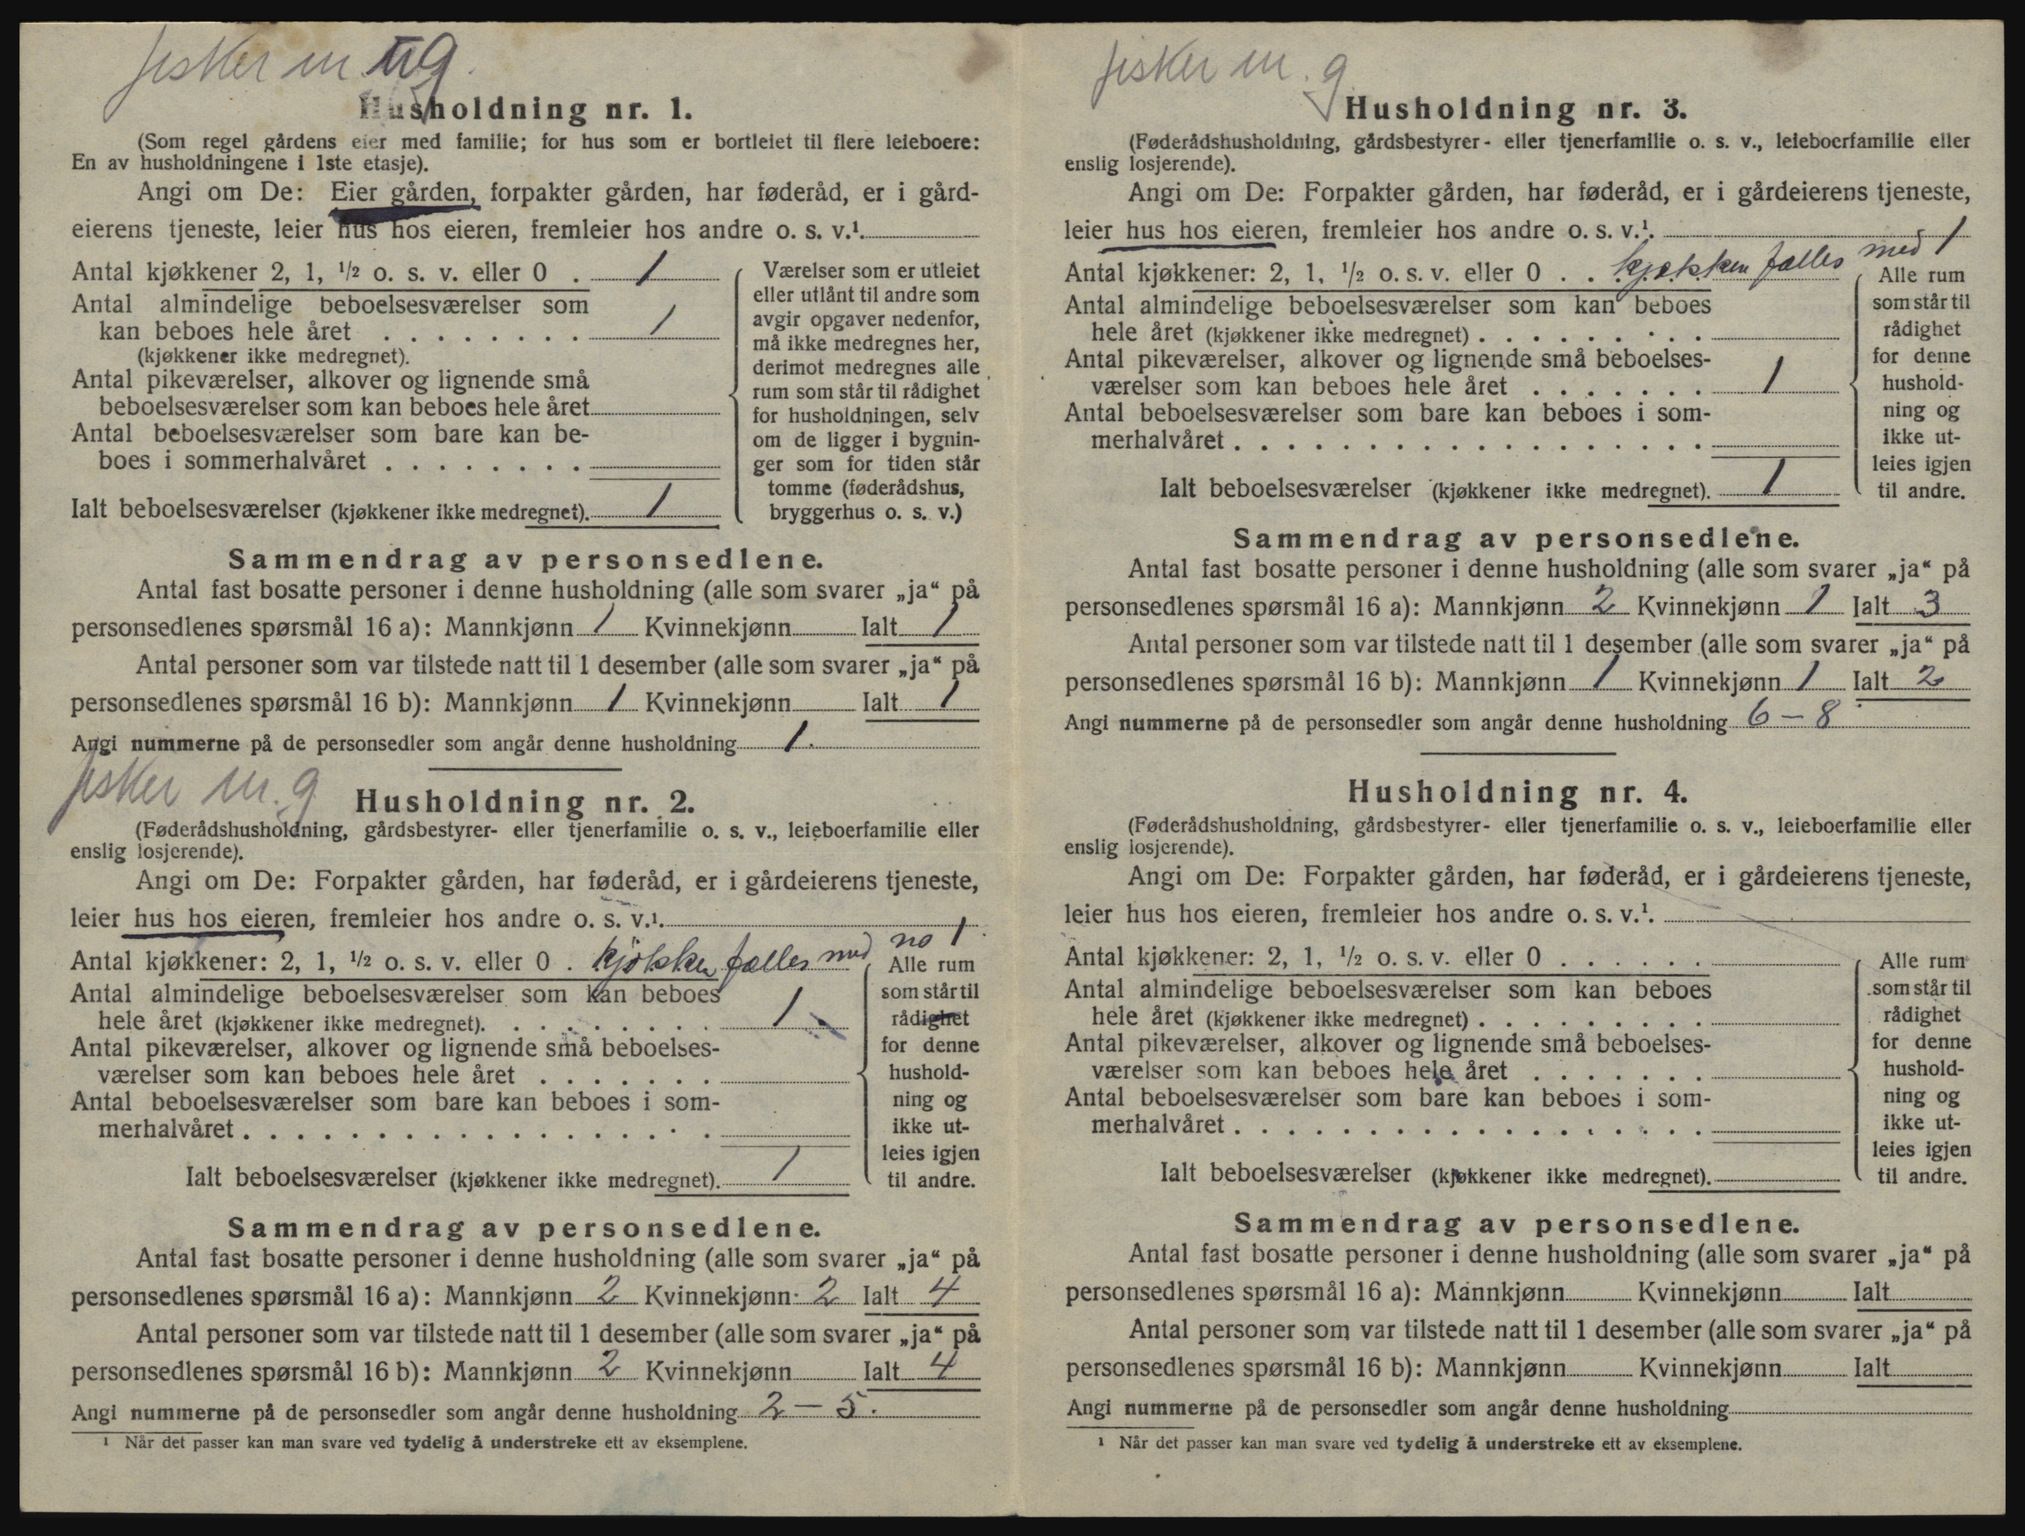 fisker m g.
Husholdning nr. 1.
(Som regel gårdens eier med familie; for hus som er bortleiet til flere leieboere:
En av husholdningene i 1ste etasje).
Angi om De: Eier gården, forpakter gården, har føderåd, er i gård-
eierens tjeneste, leier hus hos eieren, fremleier hos andre o. s. v.¹.
Antal kjøkkener 2, 1, ½ o. s. v. eller 0 . 1
Antal almindelige beboelsesværelser som
kan beboes hele året . . . . . . . . 1
(kjøkkener ikke medregnet).
Antal pikeværelser, alkover og lignende små
beboelsesværelser som kan beboes hele året
Antal beboelsesværelser som bare kan be-
boes i sommerhalvåret . . . . . . . .
Ialt beboelsesværelser (kjøkkener ikke medregnet). 1
Værelser som er utleiet
eller utlånt til andre som
avgir opgaver nedenfor,
må ikke medregnes her,
derimot medregnes alle
rum som står til rådighet
for husholdningen, selv
om de ligger i bygnin-
ger som for tiden står
tomme (føderådshus,
bryggerhus o. s. v.)
Sammendrag av personsedlene.
Antal fast bosatte personer i denne husholdning (alle som svarer „ja“ på
personsedlenes spørsmål 16 a): Mannkjønn 1 Kvinnekjønn Ialt 1
Antal personer som var tilstede natt til 1 desember (alle som svarer „ja“ på
personsedlenes spørsmål 16 b): Mannkjønn 1 Kvinnekjønn Ialt 1
Angi nummerne på de personsedler som angår denne husholdning 1.
fisker m. g
Husholdning nr. 2.
(Føderådshusholdning, gårdsbestyrer- eller tjenerfamilie o. s. v., leieboerfamilie eller
enslig losjerende).
Angi om De: Forpakter gården, har føderåd, er i gårdeierens tjeneste,
leier hus hos eieren, fremleier hos andre o. s. v.¹.
Antal kjøkkener: 2, 1, ½ o. s. v. eller 0 . kjökken fælles med no 1
Antal almindelige beboelsesværelser som kan beboes
hele året (kjøkkener ikke medregnet). . . . . . . . . 1
Antal pikeværelser, alkover og lignende små beboelses-
værelser som kan beboes hele året . . . . . . .
Antal beboelsesværelser som bare kan beboes i som-
merhalvåret . . . . . . . . . . . . . . . . . .
Ialt beboelsesværelser (kjøkkener ikke medregnet). 1
Alle rum
som står til
rådighet
for denne
hushold-
ning og
ikke ut-
leies igjen
til andre.
Sammendrag av personsedlene.
Antal fast bosatte personer i denne husholdning (alle som svarer „ja“ på
personsedlenes spørsmål 16 a): Mannkjønn 2 Kvinnekjønn 2 Ialt 4
Antal personer som var tilstede natt til 1 desember (alle som svarer „ja“ på
personsedlenes spørsmål 16 b): Mannkjønn 2 Kvinnekjønn Ialt 4
Angi nummerne på de personsedler som angår denne husholdning 2 – 5.
¹ Når det passer kan man svare ved tydelig å understreke ett av eksemplene.
fisker m. g
Husholdning nr. 3.
(Føderådshusholdning, gårdsbestyrer- eller tjenerfamilie o. s. v., leieboerfamilie eller
enslig losjerende).
Angi om De: Forpakter gården, har føderåd, er i gårdeierens tjeneste,
leier hus hos eieren, fremleier hos andre o. s. v.¹.
Antal kjøkkener: 2, 1, ½ o. s. v. eller 0 . . kjøkken fælles med 1
Antal almindelige beboelsesværelser som kan beboes
hele året (kjøkkener ikke medregnet) . . . . . . . . .
Antal pikeværelser, alkover og lignende små beboelses-
værelser som kan beboes hele året . . . . . . . 1
Antal beboelsesværelser som bare kan beboes i som-
merhalvåret . . . . . . . . . . . . . . . . . .
Ialt beboelsesværelser (kjøkkener ikke medregnet). 1
Alle rum
som står til
rådighet
for denne
hushold-
ning og
ikke ut-
leies igjen
til andre.
Sammendrag av personsedlene.
Antal fast bosatte personer i denne husholdning (alle som svarer „ja“ på
personsedlenes spørsmål 16 a): Mannkjønn 2 Kvinnekjønn 1 Ialt 3
Antal personer som var tilstede natt til 1 desember (alle som svarer „ja“ på
personsedlenes spørsmål 16 b): Mannkjønn 1 Kvinnekjønn 1 Ialt 2
Angi nummerne på de personsedler som angår denne husholdning 6 – 8
Husholdning nr. 4.
(Føderådshusholdning, gårdsbestyrer- eller tjenerfamilie o. s. v., leieboerfamilie eller
enslig losjerende).
Angi om De: Forpakter gården, har føderåd, er i gårdeierens tjeneste,
leier hus hos eieren, fremleier hos andre o. s. v.¹.
Antal kjøkkener: 2, 1, ½ o. s. v. eller 0 . . . . . .
Antal almindelige beboelsesværelser som kan beboes
hele året (kjøkkener ikke medregnet) . . . . . . . . .
Antal pikeværelser, alkover og lignende små beboelses-
værelser som kan beboes hele året . . . . . . .
Antal beboelsesværelser som bare kan beboes i som-
merhalvåret . . . . . . . . . . . . . . . . . .
Ialt beboelsesværelser (kjøkkener ikke medregnet).
Alle rum
som står til
rådighet
for denne
hushold-
ning og
ikke ut-
leies igjen
til andre.
Sammendrag av personsedlene.
Antal fast bosatte personer i denne husholdning (alle som svarer „ja“ på
personsedlenes spørsmål 16 a): Mannkjønn Kvinnekjønn Ialt
Antal personer som var tilstede natt til 1 desember (alle som svarer „ja“ på
personsedlenes spørsmål 16 b): Mannkjønn Kvinnekjønn Ialt
Angi nummerne på de personsedler som angår denne husholdning
¹ Når det passer kan man svare ved tydelig å understreke ett av eksemplene.